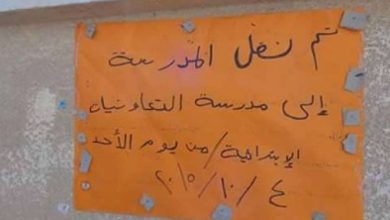 تم نقل المدرسة
إلى مدرسة التعاونيات
الإبتدائية / من يوم الأحد
٤ / ١٠ / ٢٠١٥